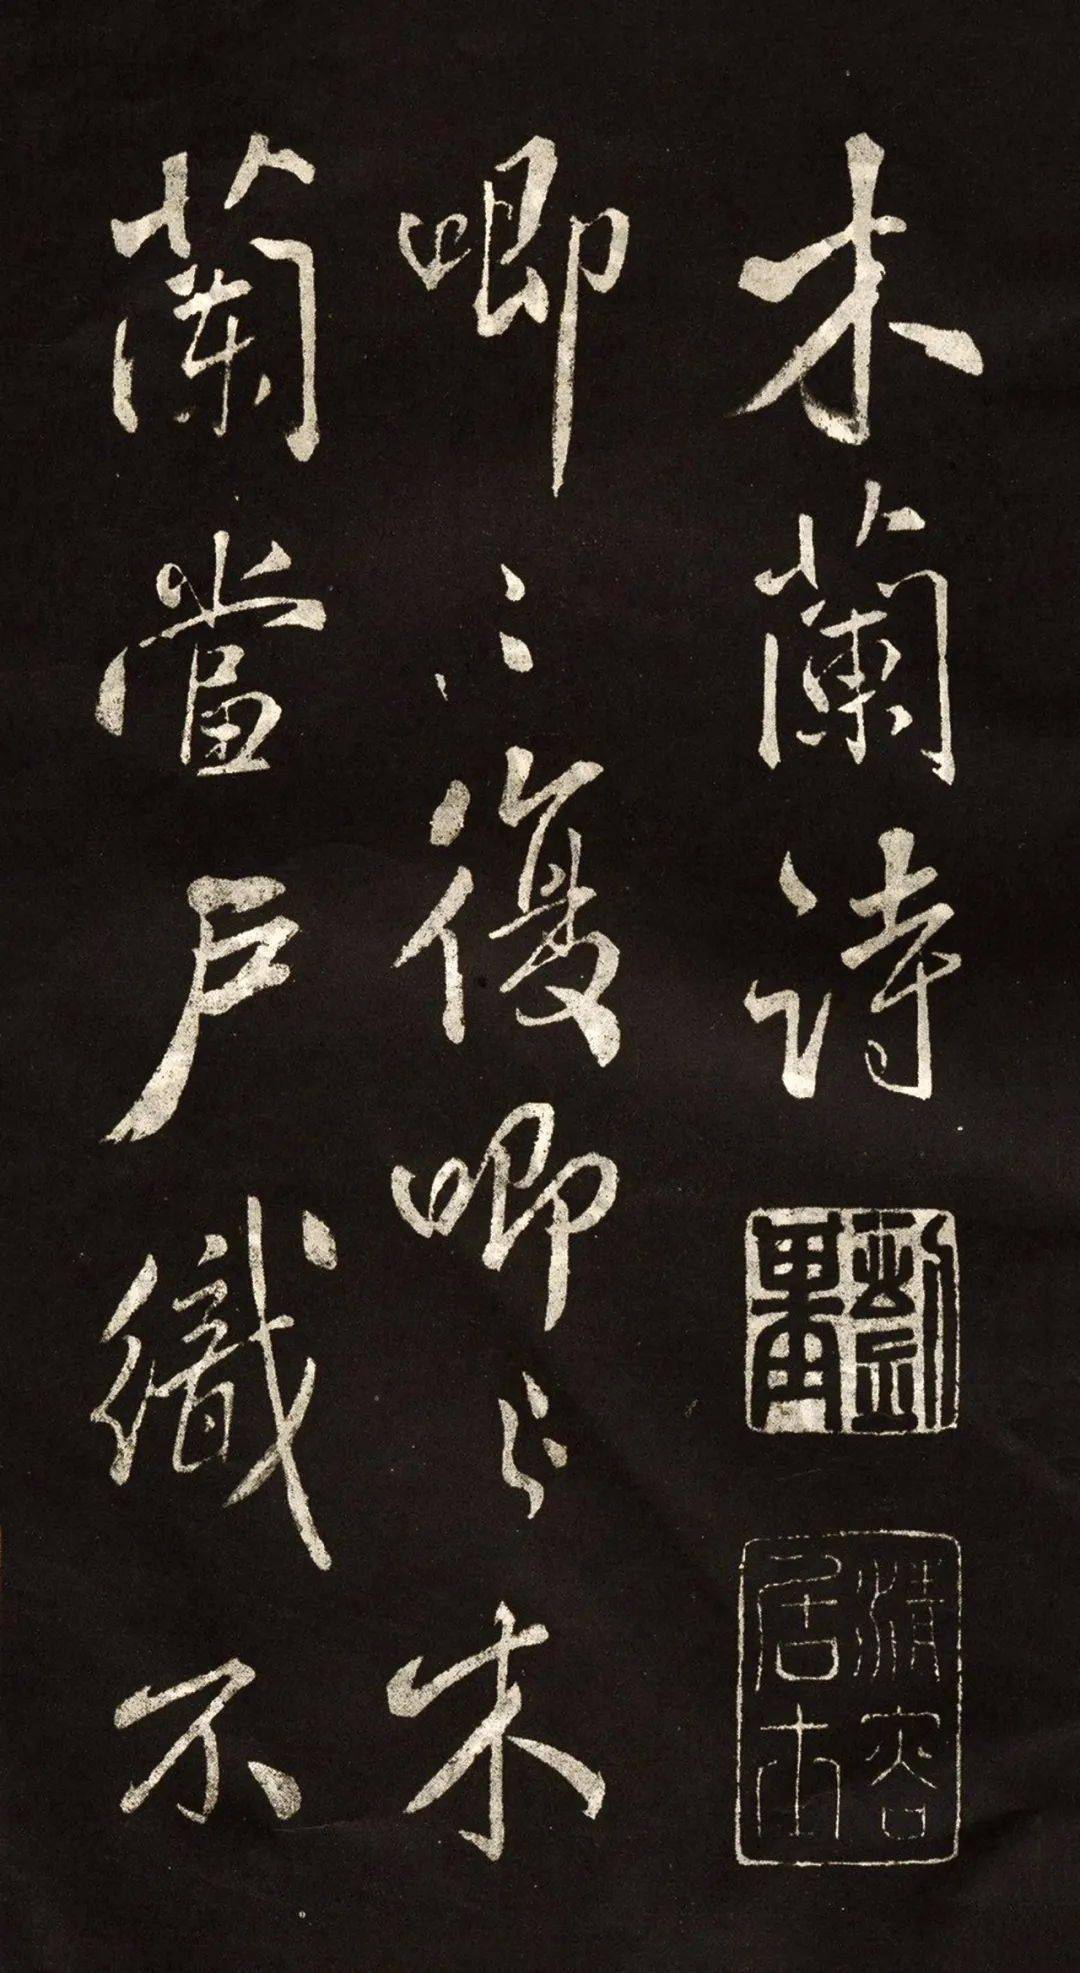 木蘭詩
劉
清容居
唧〻復唧〻木
蘭當戶織不